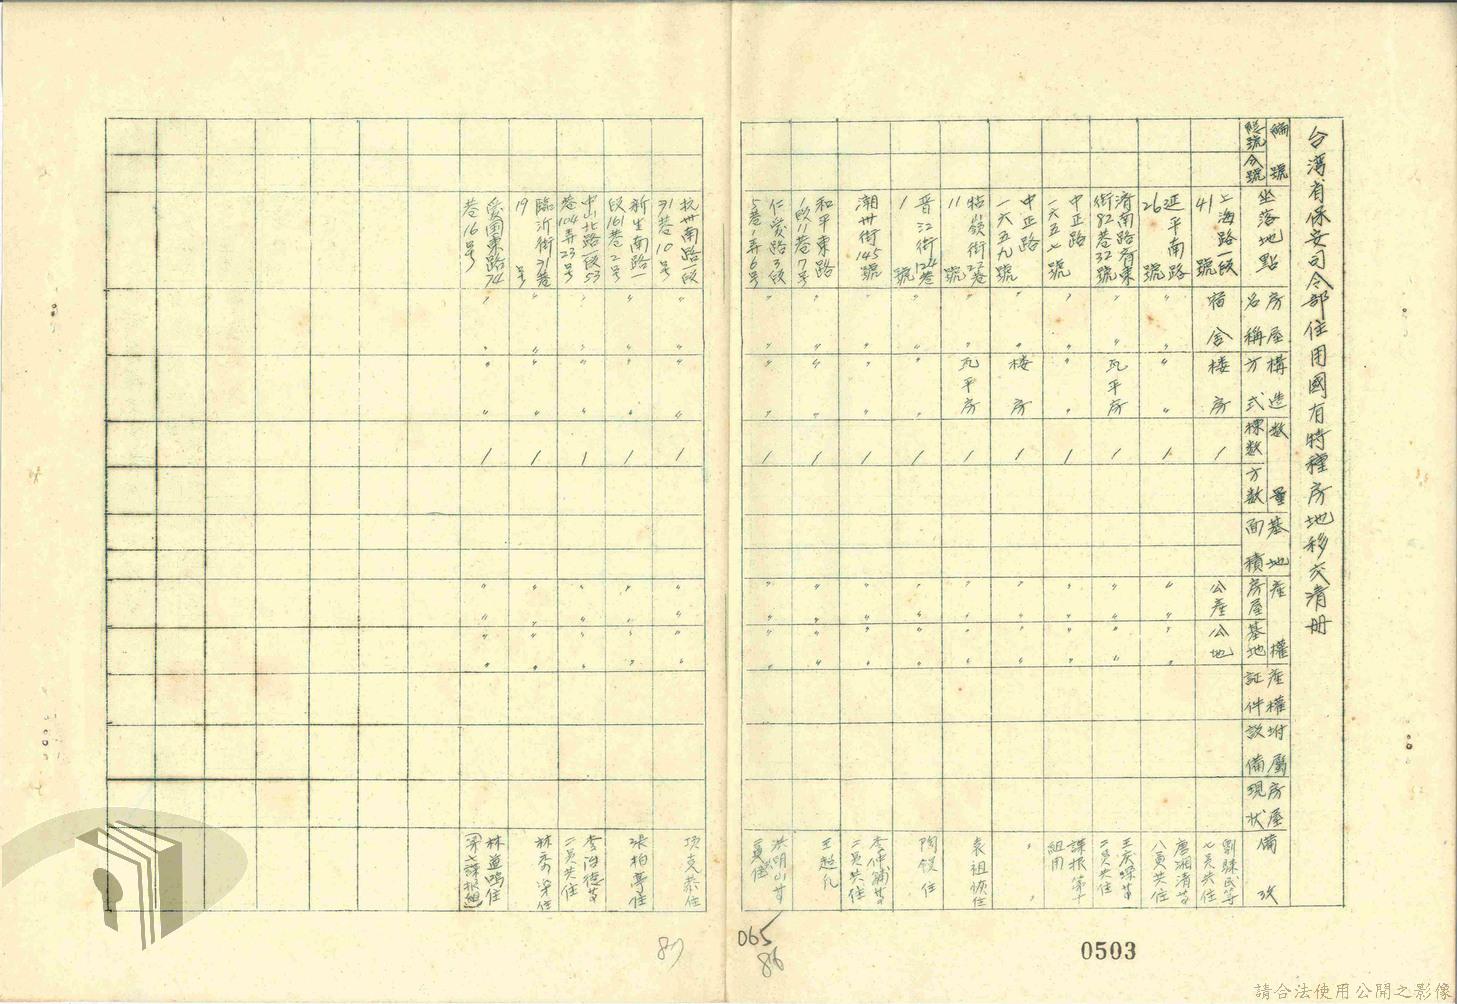 台湾省保安司令部住用國有特種房地移交清册
編號
總號
令號
坐落地點
房屋名稱
構造方式
數量
棟数
方数
基地面積
產權
房屋
基地
產權証件
附屬設備
房屋現状
備攷
上海路一段41號
宿舍
楼房
1
公產
公地
劉縣民等七員共住
延平南路26號
〃
〃
〃
〃
1
〃
〃
〃
〃
唐湘清等八員共住
濟南路有東街82巷32號
〃
〃
瓦平房
1
〃
〃
〃
〃
二員共住
中正路一六五七號
〃
〃
〃
〃
1
〃
〃
〃
〃
諜报第十組用
中正路一六五九號
〃
〃
楼房
1
〃
〃
〃
〃
〃
〃
牯嶺街22巷11號
〃
〃
瓦平房
1
〃
〃
〃
〃
袁祖恢住
晋江街124巷1號
〃
〃
〃
〃
1
〃
〃
〃
〃
陶鎔住
潮州街145號
〃
〃
〃
〃
1
〃
〃
〃
〃
李仲辅等二員共住
和平東路1段11巷7号
〃
〃
〃
〃
1
〃
〃
〃
〃
王超凡
仁愛路3段5巷1弄6号
〃
〃
〃
〃
1
〃
〃
〃
〃
洪明山等
杭州南路一段71巷10号
〃
〃
〃
〃
1
〃
〃
〃
〃
項克恭住
新生南路一段161巷2号
〃
〃
〃
〃
1
〃
〃
〃
〃
張柏亭住
中山北路一段53巷104弄23号
〃
〃
〃
〃
1
〃
〃
〃
〃
李治德等二員共住
臨沂街71巷19号
〃
〃
〃
〃
1
〃
〃
〃
〃
林秀深住
愛國東路74巷16号
〃
〃
〃
〃
1
〃
〃
〃
〃
林道鴻住
(第七諜报組)
87
065
86
0503
請合法使用公開之影像